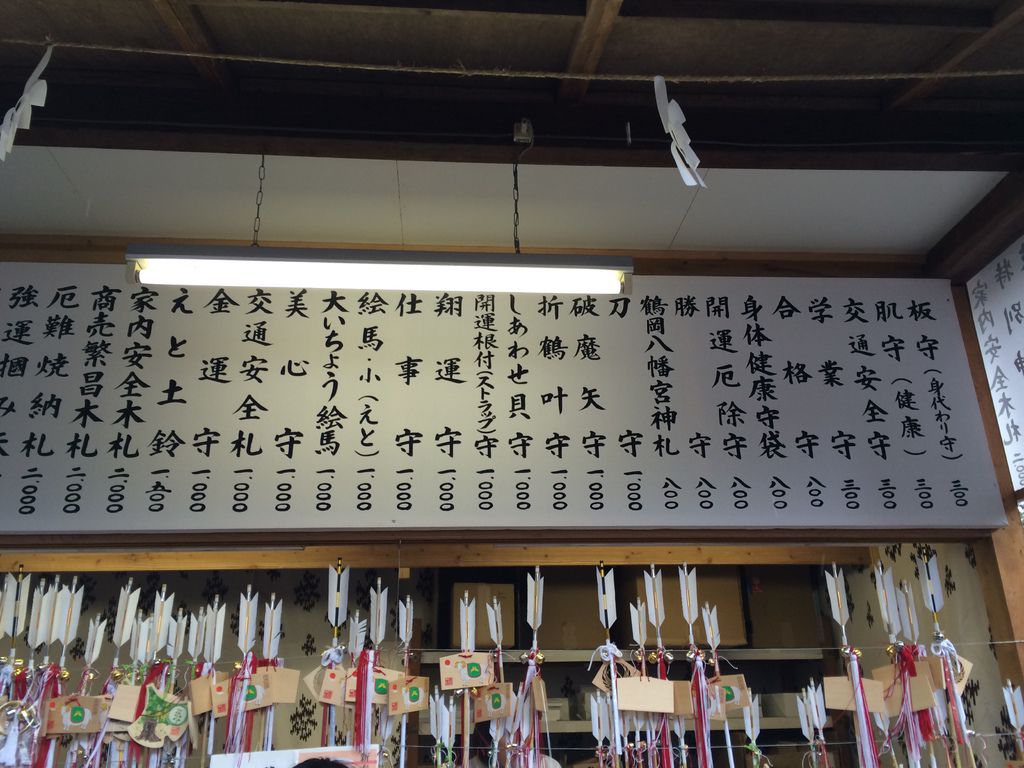 板守(身代わり守)三〇〇
肌守(健康)三〇〇
交通安全守三〇〇
学業守三〇〇
合格守八〇〇
身体健康守袋八〇〇
開運厄除守八〇〇
勝守八〇〇
鶴岡八幡宮神札八〇〇
刀守一、〇〇〇
破魔矢守一、〇〇〇
折鶴叶守一、〇〇〇
しあわせ貝守一、〇〇〇
開運根付(ストラップ)守一、〇〇〇
翔運守一、〇〇〇
仕事守一、〇〇〇
絵馬小(えと)一、〇〇〇
大いちょう絵馬一、〇〇〇
美心守一、〇〇〇
交通安全札一、〇〇〇
金運守一、〇〇〇
えと土鈴一、五〇〇
家内安全木札二、〇〇〇
商売繁昌木札二、〇〇〇
厄難焼納札二、〇〇〇
強運掴み札二、〇〇〇
特別神
家内安全木札